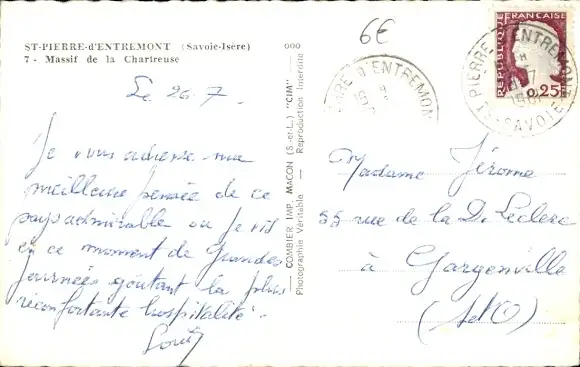 6€
ST-PIERRE-d'ENTREMONT (Savoie-Isère)
7 - Massif de la Chartreuse
000
Le 26.7.
Je vous adresse ma
meilleure pensée de ce
pays admirable où je vis
en ce moment de grandes
journées goûtant la plus
réconfortante hospitalité.
COMBIER IMP. MACON (S.-et-L.) "CIM"
Photographie Véritable — Reproduction Interdite
REPUBLIQUE FRANÇAISE
0,25
PIERRE D'ENTREMONT
SAVOIE
Madame Jérome
55 rue de la D. Leclerc
à Gargenville
(S et O)